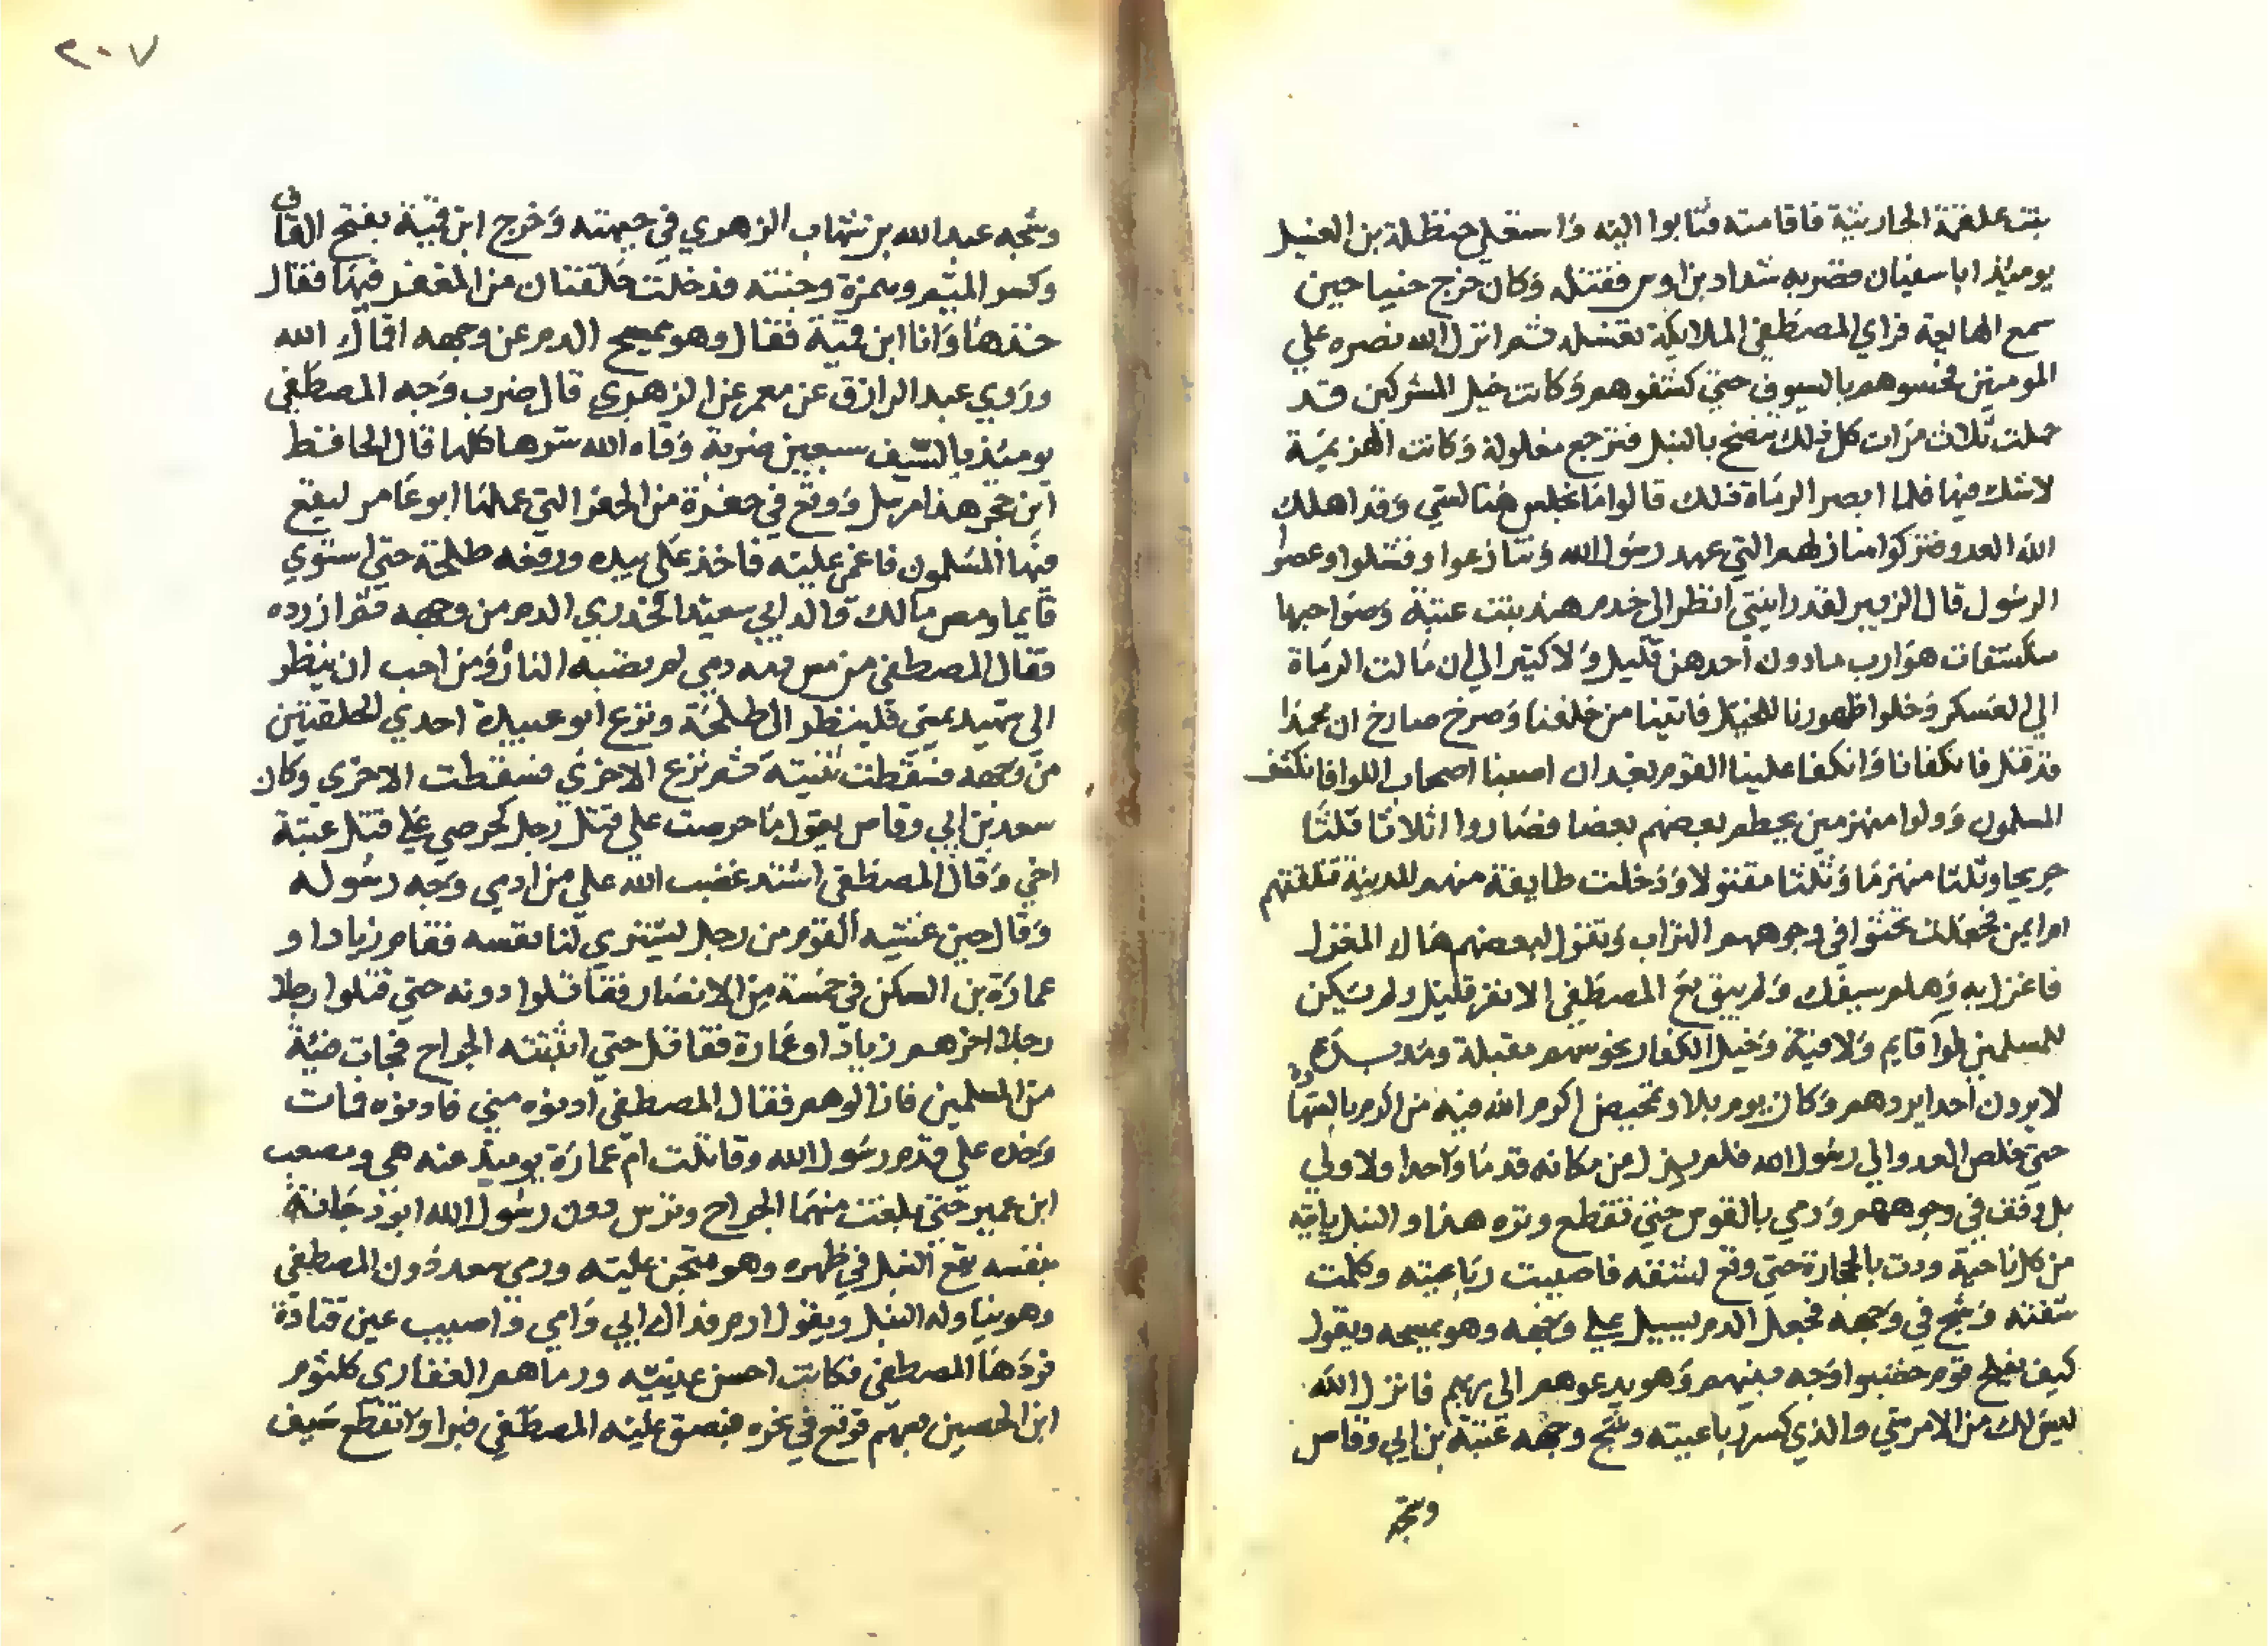 بنت علقمة الحارثية فاقامته فثابوا اليه واستقبل حنظلة بن الغسيل
يوميذ ابا سفيان فضربه شداد بن اوس فقتله وكان خرج جنبا حين
سمع الهايعة فراي المصطفي الملايكة تغسله ثم انزل الله نصره علي
المومنين فحسوهم بالسيوف حتي كشفوهم وكانت خيل المشركين قد
حملت ثلاث مرات كل ذلك تنضح بالنبل فترجع مغلولة وكانت الهزيمة
لاشك فيها فلما ابصر الرماة ذلك قالوا ما نجلس هنا لشي وقد اهلك
الله العدو فتركوا منازلهم التي عهد رسول الله وتنازعوا وفشلوا وعصوا
الرسول قال الزبير لقد رايتني انظر الي خدم هند بنت عتبة وصواحبها
منكشفات هوارب مادون احدهن قليل ولا كثير الي ان مالت الرماة
الي العسكر وخلوا ظهورنا للخيل فاتينا من خلفنا وصرخ صارخ ان محمدا
قد قتل فانكفانا وانكفا علينا القوم بعد ان اصبنا اصحاب اللوا فانكشف
المسلمون وولوا منهزمين يحطم بعضهم بعضا فصاروا اثلاثا ثلثا
جريحا وثلثا منهزما وثلثا مقتولا ودخلت طايفة منهم المدينة فلقتهم
ام ايمن فجعلت تحثوا في وجوههم التراب وتقول لبعضهم هاك المغزل
فاغزل به وهلم سيفك ولم يبق مع المصطفي الا نفر قليل ولم يكن
للمسلمين لوا قايم ولا فية وخيل الكفار نحوسهم مقبلة ومدبرة
لا يرون احدا يردهم وكان يوم بلا وتمحيص اكرم الله فيه من اكرم بالشهادة
حتي خلص العدو الي رسول الله فلم يزل من مكانه قدما واحدا ولا ولي
بل وقف في وجوههم ورمي بالقوس حتي تقطع وتره هذا والنبل ياتيه
من كل ناحية ودث بالحجارة حتي وقع لشقه فاصيبت رباعيته وكلمت
شفته وشج في وجهه فجعل الدم يسيل علي وجهه وهو يمسحه ويقول
كيف يفلح قوم خضبوا وجه نبيهم وهو يدعوهم الي ربهم فانزل الله
ليس لك من الامر شي والذي كسر رباعيته وشج وجهه عتبة بن ابي وقاص
وشجه
٢٠٧
وشجه عبد الله بن شهاب الزهري في جبهته وخرج ابن قمية بفتح القاف
وكسر الميم وهمزة وجنته فدخلت حلقتان من المغفر فيها فقال
خذها وانا ابن قمية فقال وهو يمسح الدم عن وجهه اقماك الله
وروي عبد الرازق عن معمر عن الزهري قال ضرب وجه المصطفي
يوميذ بالسيف سبعين ضربة وقاه الله شرها كلها قال الحافظ
ابن حجر هذا مرسل ووقع في حفرة من الحفر التي عملها ابو عامر ليقع
فيها المسلمون فاغمي عليه فاخذ علي بيده ورفعه طلحة حتي استوي
قايما ومص مالك والد ابي سعيد الخدري الدم من وجهه ثم ازدرده
فقال المصطفي من مس دمه دمي لم تصبه النار ومن احب ان ينظر
الي شهيد يمشي فلينظر الي طلحة ونزع ابو عبيدة احدي الحلقتين
من وجهه فسقطت ثنيته ثم نزع الاخري فسقطت الاخري وكان
سعد بن ابي وقاص يقول ما حرصت علي قتل رجل كحرصي علي قتل عتبة
اخي وقال المصطفي اشتد غضب الله علي من ادمي وجه رسوله
وقال حين غشيه القوم من رجل يشتري لنا نفسه فقام زياد او
عمارة بن السكن في خمسة من الانصار فقاتلوا دونه حتي قتلوا رجلا
رجلا اخرهم زياد او عمارة فقاتل حتي اثبتته الجراح فجات فية
من المسلمين فازالوهم فقال المصطفي ادنوه مني فادنوه فمات
وخده علي قدم رسول الله وقاتلت ام عمارة يوميذ عنه هي ومصعب
ابن عمير حتي بلغت منهما الجراح وترس دون رسول الله ابو دجانة
بنفسه يقع النبل في ظهره وهو منحن عليه ورمي سعد دون المصطفي
وهو يناوله النبل ويقول ارم فداك ابي وامي واصيب عين قتادة
فردها المصطفي فكانت احسن عينيه ورماهم الغفاري كلثوم
ابن الحصين بسهم فوقع في نحره فبصق عليه المصطفي فبرا وانقطع سيف